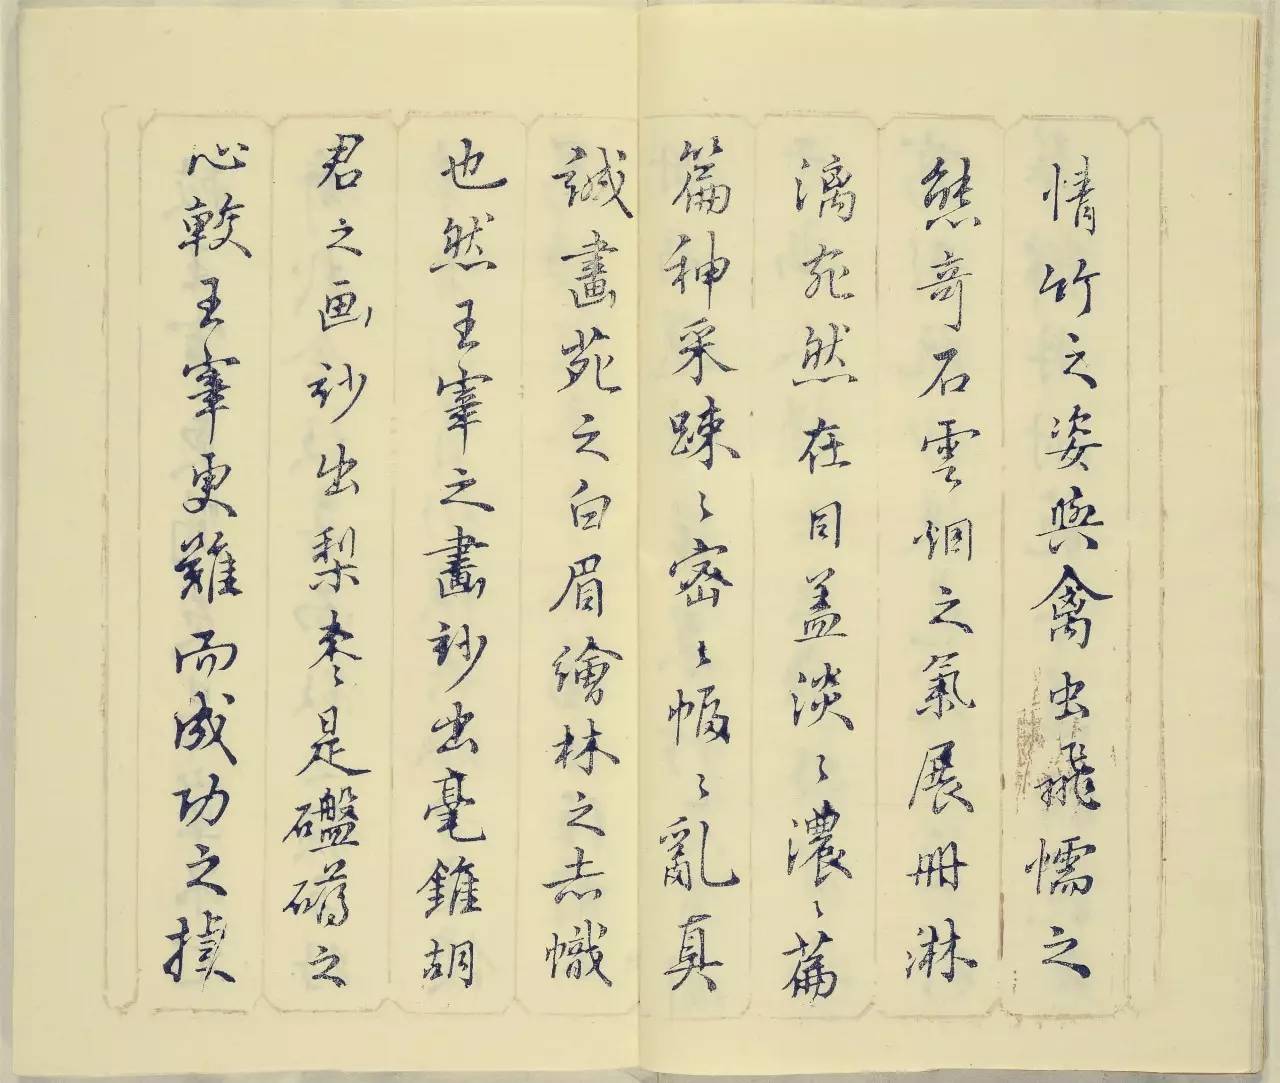 情竹之姿與禽虫飛懦之
態奇石雲烟之氣展冊淋
漓宛然在目盖淡〻濃〻篇
篇神采疎〻密〻幅〻亂真
誠畫苑之白眉繪林之赤幟
也然王宰之畫玅出毫錐胡
君之画玅出梨枣是磐礴之
心較王宰更難而成功之